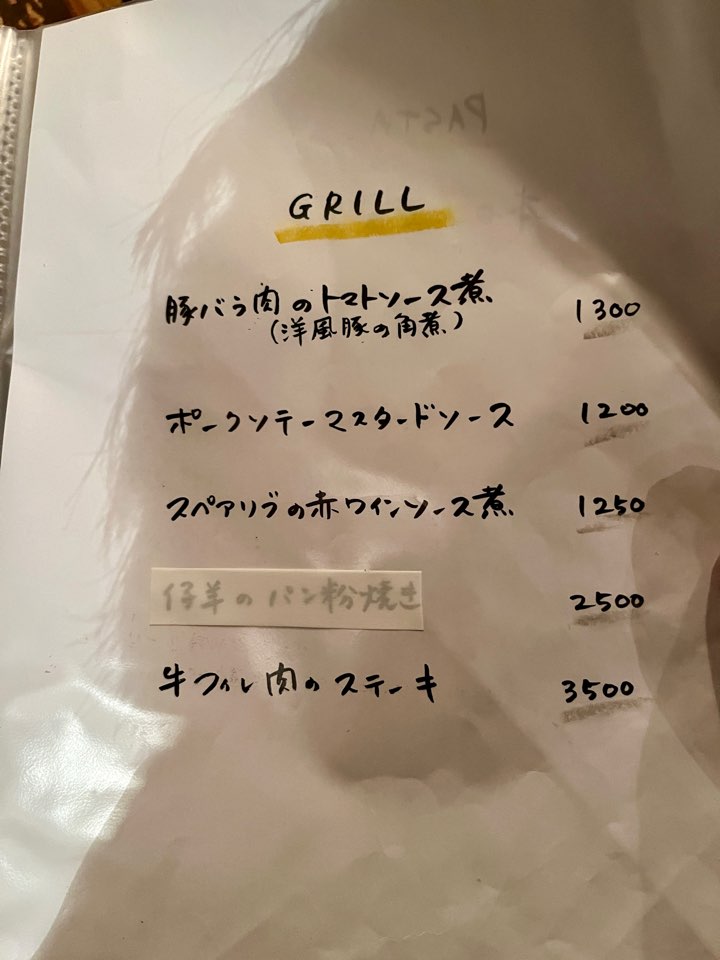 PASTA
GRILL
豚バラ肉のトマトソース煮 1300
(洋風豚の角煮)
ポークソテーマスタードソース 1200
スペアリブの赤ワインソース煮 1250
仔羊のパン粉焼き 2500
牛フィレ肉のステーキ 3500